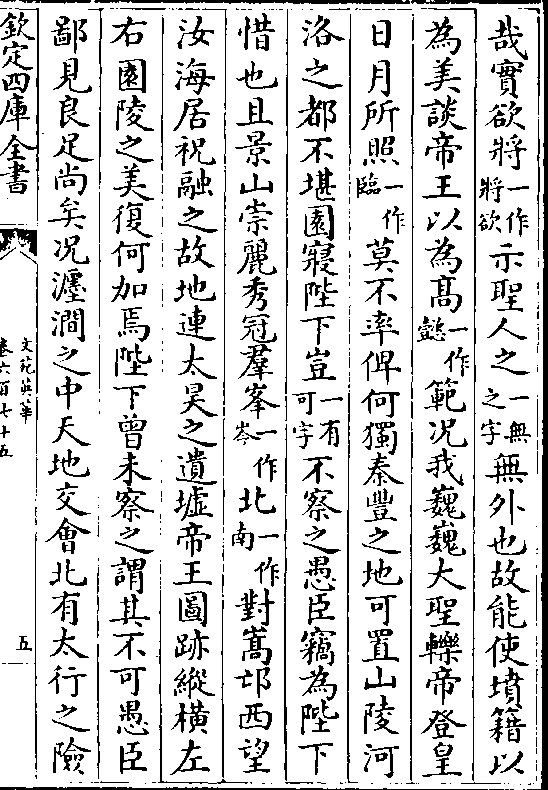 哉實欲將一作將欲示聖人之一無之字無外也故能使墳籍以
為美談帝王以為高一作懿範况我巍巍大聖轢帝登皇
日月所照一作臨莫不率俾何獨秦豐之地可置山陵河
洛之都不堪園寢陛下豈一有可字不察之愚臣竊為陛下
惜也且景山崇麗秀冠羣峯一作岑北一作南對嵩邙西望
汝海居祝融之故地連太昊之遺墟帝王圖跡縱橫左
右園陵之美復何加焉陛下曾未察之謂其不可愚臣
鄙見良足尚矣况瀍澗之中天地交會北有太行之險
欽定四庫全書
文苑英華
卷六百七十五
五